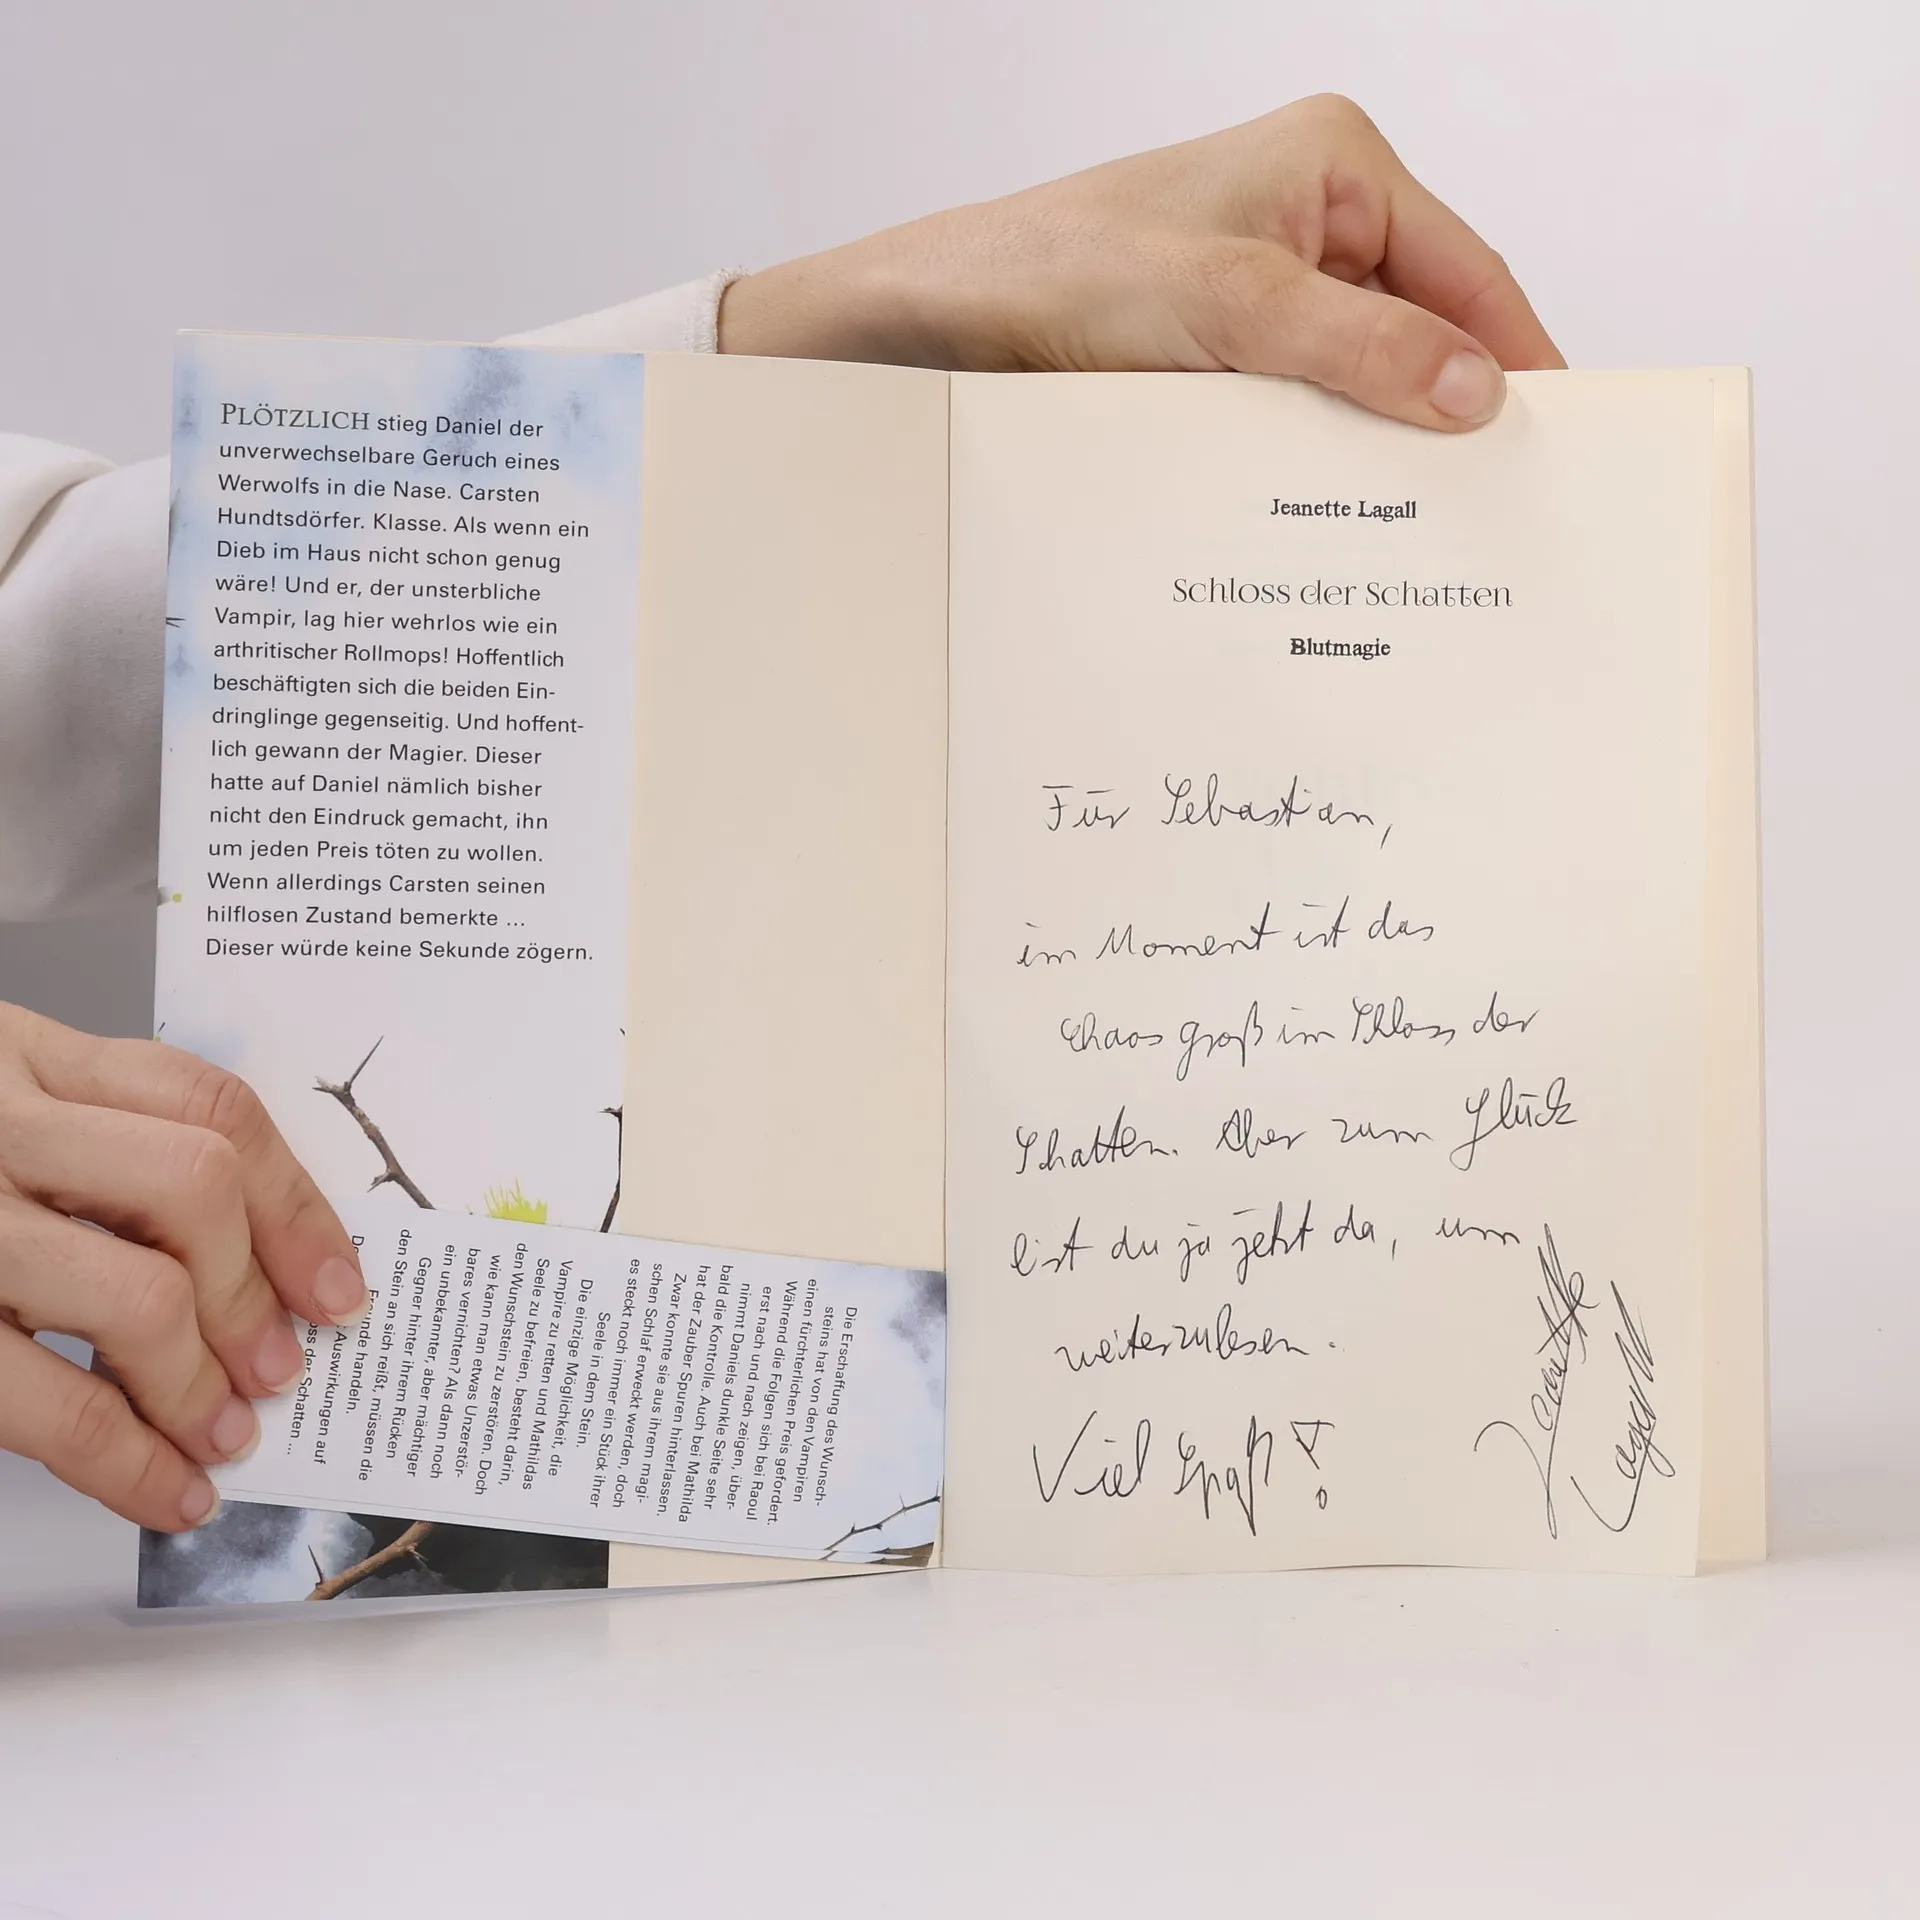 PLÖTZLICH stieg Daniel der
unverwechselbare Geruch eines
Werwolfs in die Nase. Carsten
Hundtsdörfer. Klasse. Als wenn ein
Dieb im Haus nicht schon genug
wäre! Und er, der unsterbliche
Vampir, lag hier wehrlos wie ein
arthritischer Rollmops! Hoffentlich
beschäftigten sich die beiden Ein-
dringlinge gegenseitig. Und hoffent-
lich gewann der Magier. Dieser
hatte auf Daniel nämlich bisher
nicht den Eindruck gemacht, ihn
um jeden Preis töten zu wollen.
Wenn allerdings Carsten seinen
hilflosen Zustand bemerkte ...
Dieser würde keine Sekunde zögern.
Die Erschaffung des Wunsch-
steins hat von den Vampiren
einen fürchterlichen Preis gefordert.
Während die Folgen sich bei Raoul
erst nach und nach zeigen, über-
nimmt Daniels dunkle Seite sehr
bald die Kontrolle. Auch bei Mathilda
hat der Zauber Spuren hinterlassen.
Zwar konnte sie aus ihrem magi-
schen Schlaf erweckt werden, doch
es steckt noch immer ein Stück ihrer
Seele in dem Stein.
Die einzige Möglichkeit, die
Vampire zu retten und Mathildas
Seele zu befreien, besteht darin,
den Wunschstein zu zerstören. Doch
wie kann man etwas Unzerstör-
bares vernichten? Als dann noch
ein unbekannter, aber mächtiger
Gegner hinter ihrem Rücken
den Stein an sich reißt, müssen die
Freunde handeln.
Auswirkungen auf
der Schatten ...
Jeanette Lagall
Schloss der Schatten
Blutmagie
Für Sebastian,
im Moment ist das
Chaos groß im Schloss der
Schatten. Aber zum Glück
bist du ja jetzt da, um
weiterzulesen.
Viel Spaß!
Jeanette
Lagall